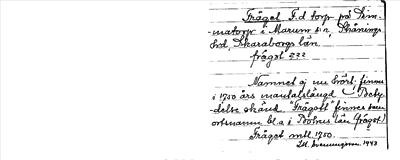 Fräget F.d torp på Sim-
-matorp i Marum s:n, Skånings
hd, Skaraborgs län.
fräget ???
Namnet ej nu hört: finnes
i 1750 års mantalslängd. Bety-
-delse okänd. "Frägott" finnes som
ortsnamn bl.a i Bohus län (fräget)
Fräget mtl. 1750.
1943